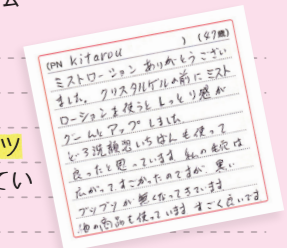 ム
ッ
てい
(PN kitarou ) (47歳)
ミストローション ありがとうござい
ました。クリスタルゲルの前にミスト
ローションを使うと しっとり感が
グーんとアップしました。
どろ洗顔石いちばんも使って
良ったと思っています 私の毛穴は
広がってすごかったのですが、黒い
ブツブツが無くなってきています
他の商品も使っています すごく良いです